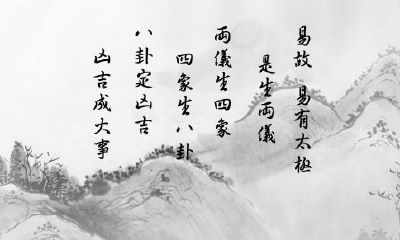 易故 易有太極
是生兩儀
兩儀生四象
四象生八卦
八卦定凶吉
凶吉成大事